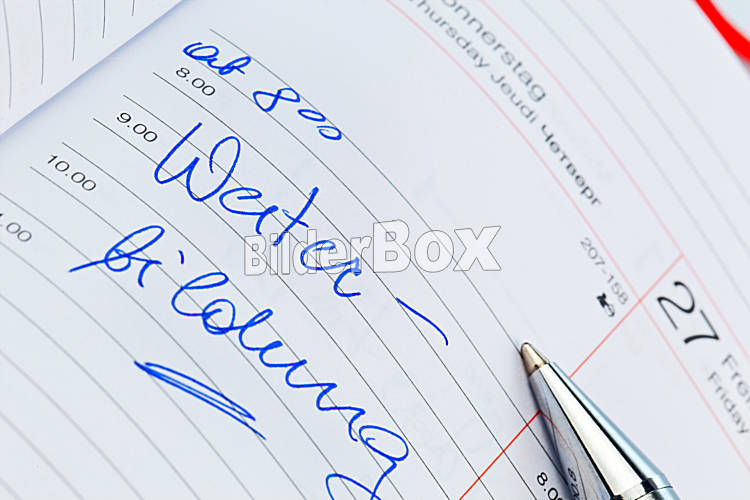 Donnerstag
Thursday Jeudi Четверг
ab 800
8.00
9.00
Weiter-
10.00
bildung
207-158
27
Friday
8.0
BilderBox